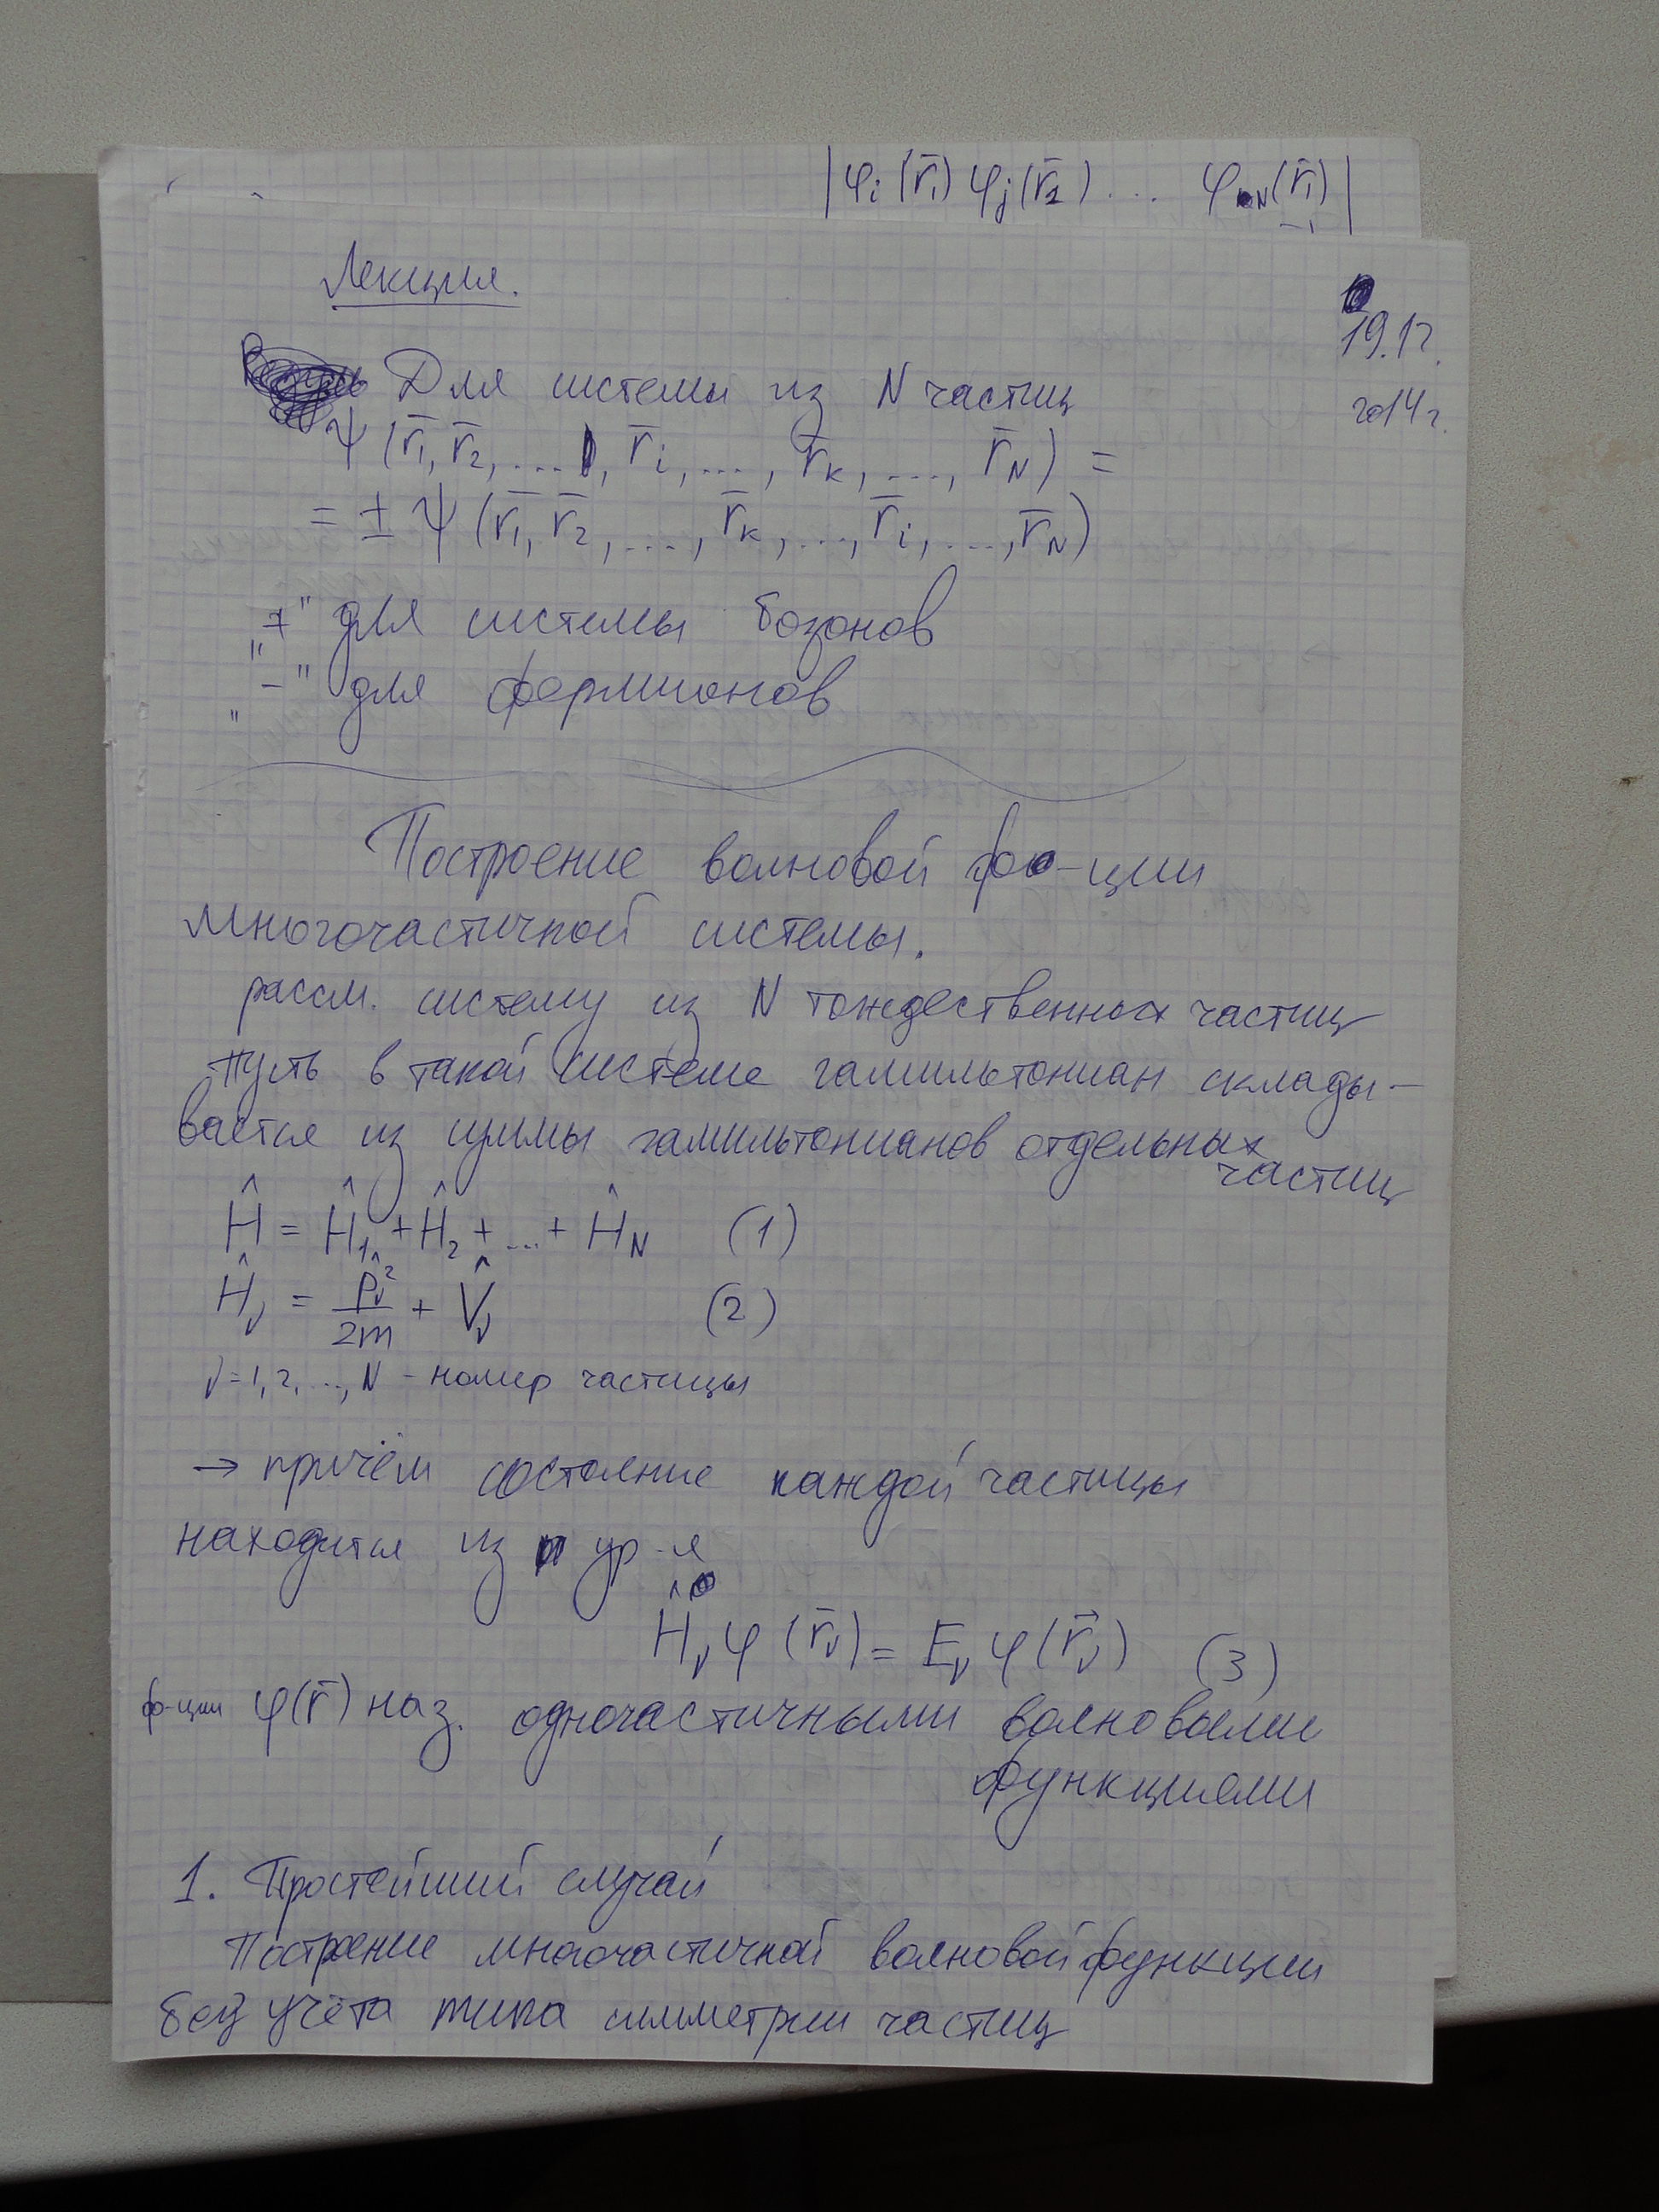 |φi(r̄1) φj(r̄2) .... φN(r̄1)|
Лекция.
19.12.
2014г.
Для системы из N частиц
ψ(r̄1, r̄2, ...., r̄i, ...., r̄k, ...., r̄N) =
= ± ψ(r̄1, r̄2, ...., r̄k, ..., r̄i, ...., r̄N)
„+" для системы бозонов
„−" для фермионов
Построение волновой ф-ции
многочастичной системы.
рассм. систему из N тождественных частиц
пусть в такой системе гамильтониан склады-
вается из суммы гамильтонианов отдельных
частиц
Ĥ = Ĥ1 + Ĥ2 + ... + ĤN (1)
Ĥν = p̂ν²/2m + V̂ν (2)
ν = 1, 2, ..., N - номер частицы
→ причём состояние каждой частицы
находится из ур-я
Ĥν φ(r̄ν) = Eν φ(r⃗ν) (3)
ф-ции φ(r̄) наз. одночастичными волновыми
функциями
1. Простейший случай
Построение многочастичной волновой функции
без учёта типа симметрии частиц